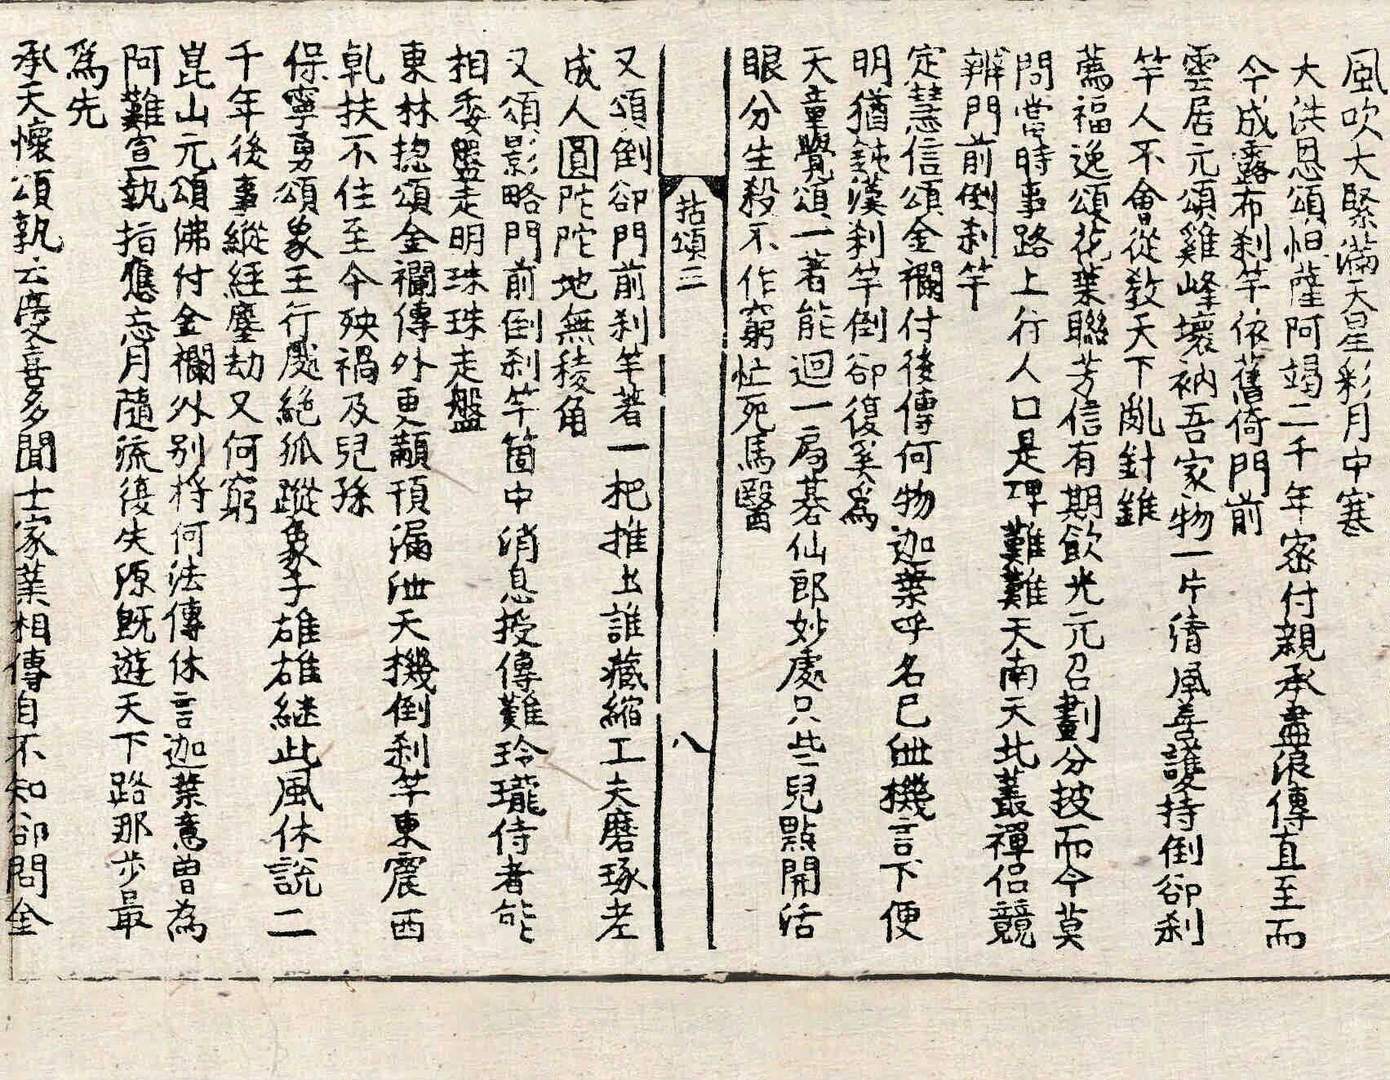 風吹大緊滿天星彩月中寒
大洪恩頌怛薩阿竭二千年密付親承盡浪傳直至而
今成露布刹竿依舊倚門前
雲居元頌雞峰壞衲吾家物一片淸風善護持倒卻刹
竿人不會從敎天下亂針錐
薦福逸頌花葉聯芳信有期飮光元召劃分披而今莫
問當時事路上行人口是碑難難天南天北叢禪侶競
辨門前倒刹竿
定慧信頌金襴付後傳何物迦葉呼名已泄機言下便
明猶鈍漢刹竿倒卻復奚爲
天童覺頌一著能迴一局碁仙郎妙處只些兒點開活
眼分生殺不作窮忙死馬醫
拈頌三
八
又頌倒卻門前刹竿著一把推上誰藏縮工夫磨琢老
成人圓陀陀地無稜角
又頌影略門前倒刹竿箇中消息授傳難玲瓏侍者能
相委盤走明珠珠走盤
東林揔頌金襴傳外更顢頇漏泄天機倒刹竿東震西
乹扶不住至今殃禍及兒孫
保寧勇頌象王行處絶狐蹤象子雄雄継此風休說二
千年後事縱経塵劫又何窮
崑山元頌佛付金襴外别將何法傳休言迦葉意曽為
阿難宣執指應忘月隨流後失源旣遊天下路那步最
爲先
承天懷頌孰云慶喜多聞士家業相傳自不知卻問金